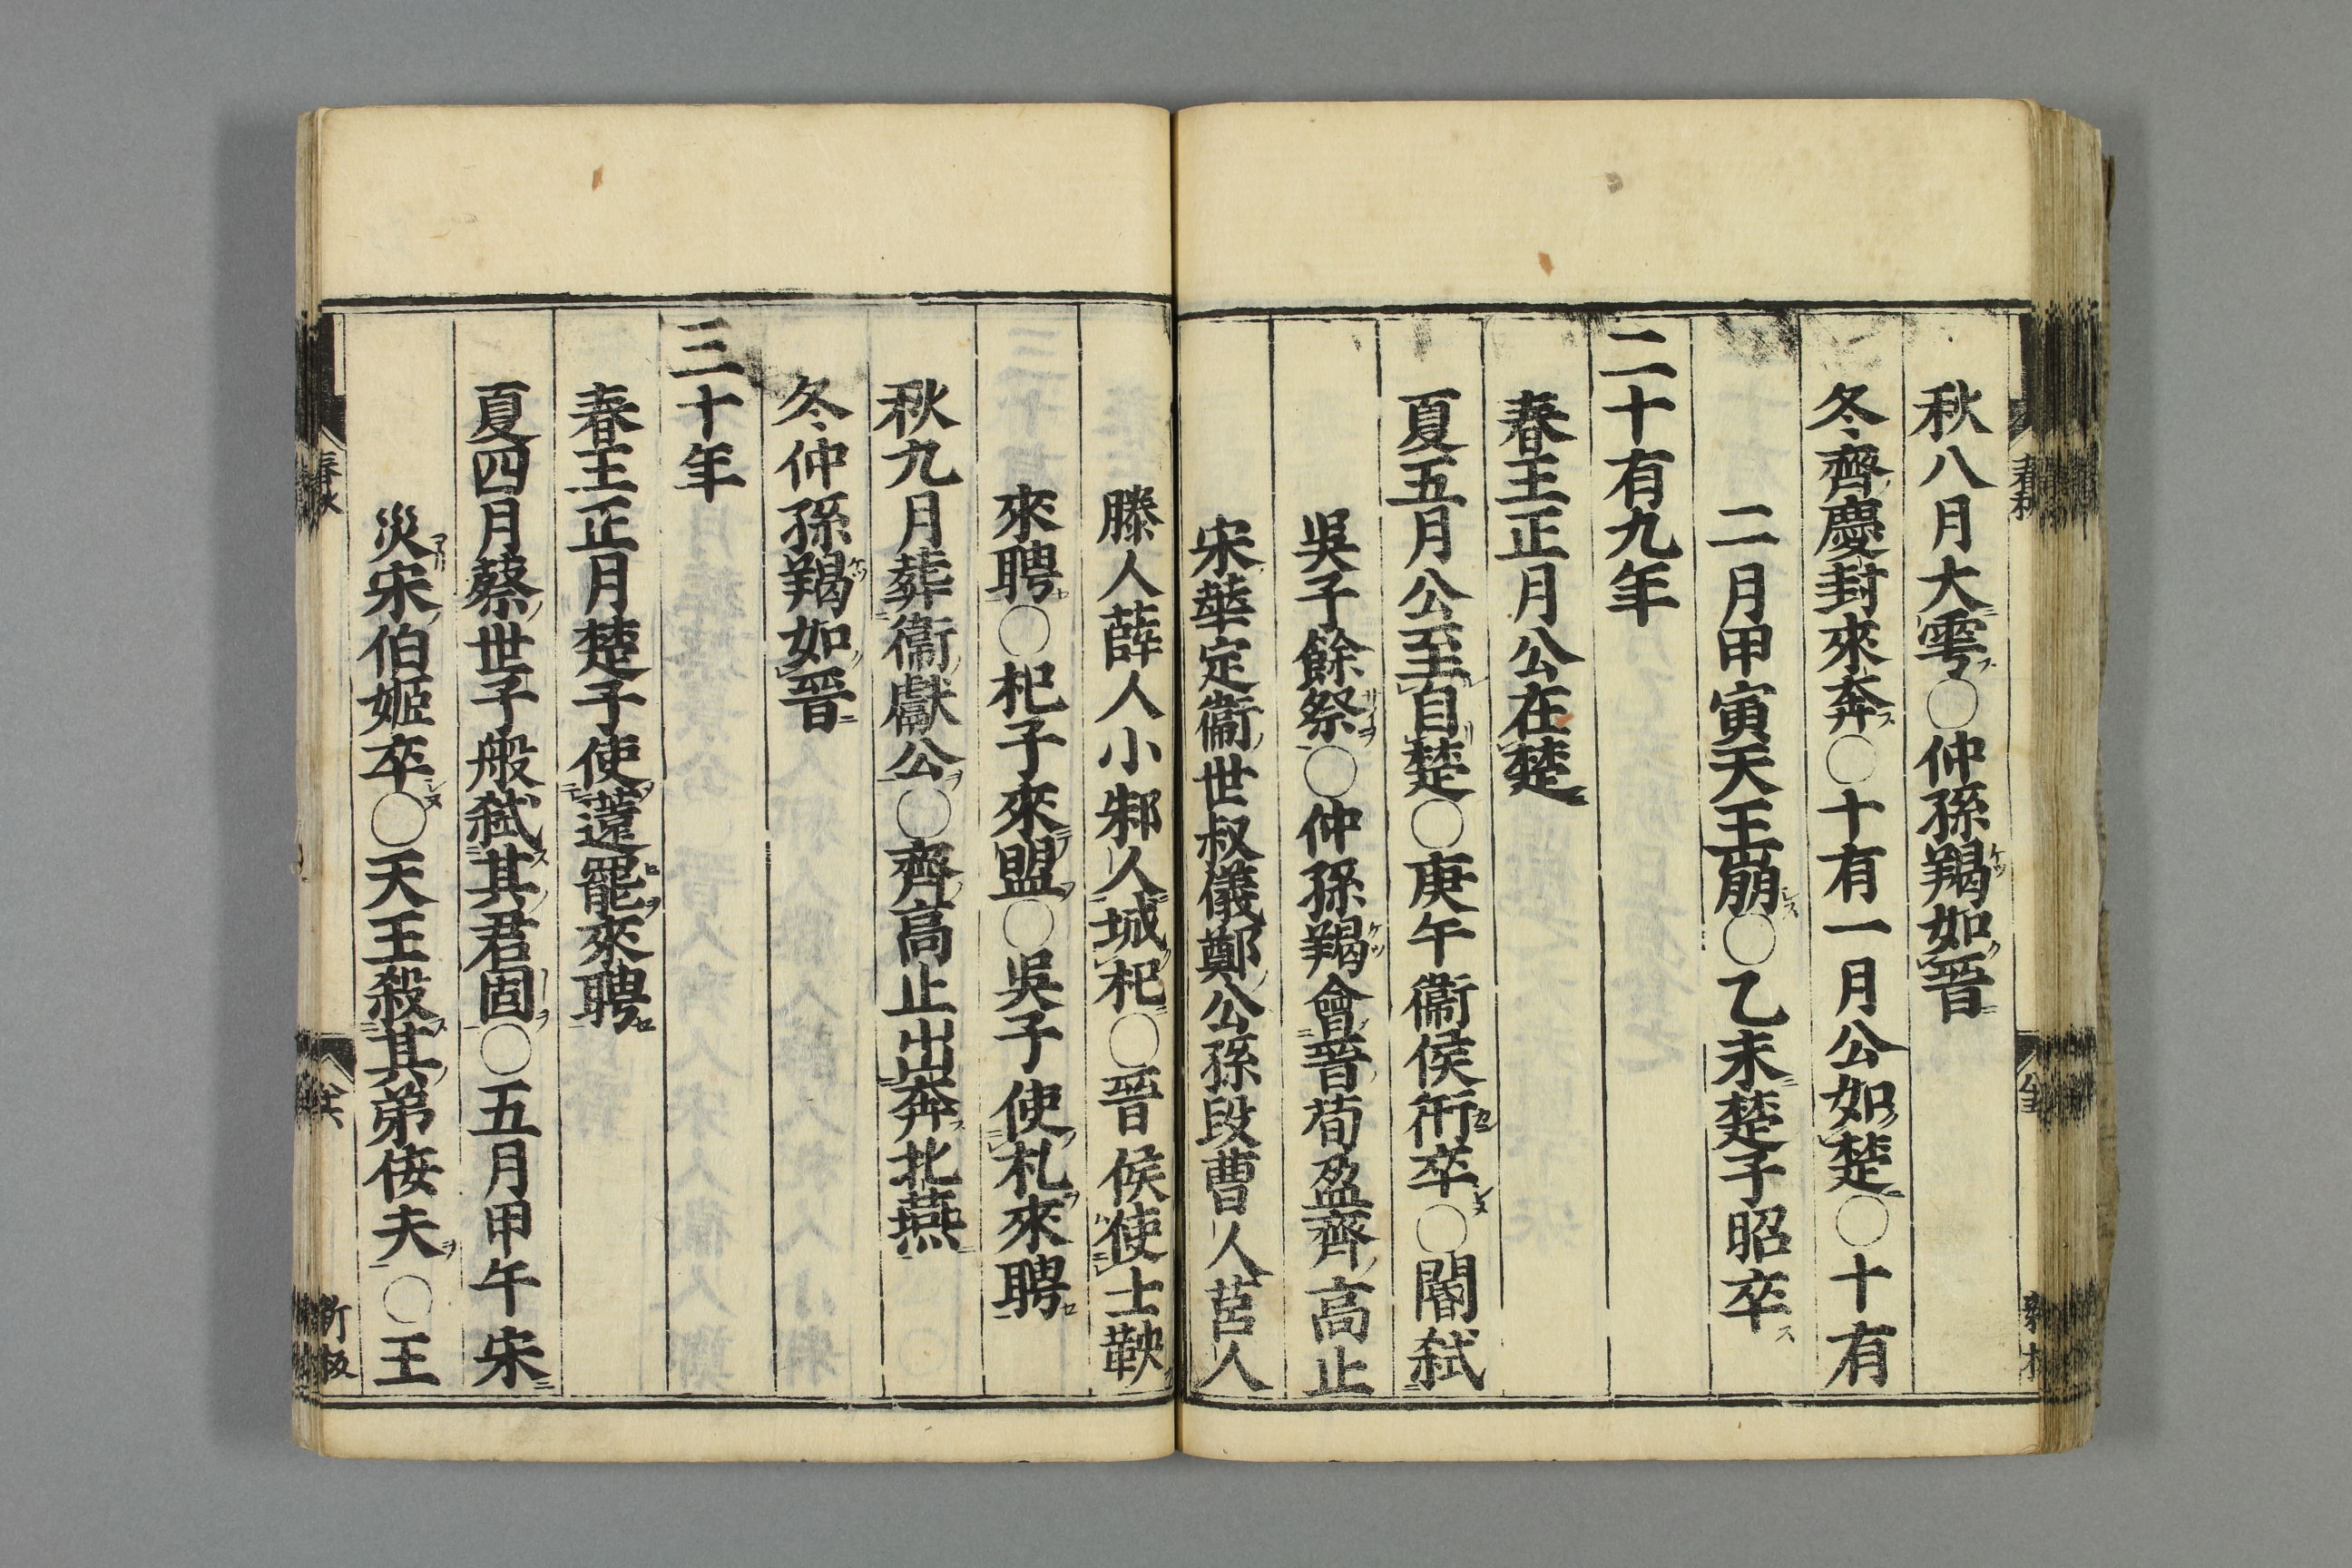 秋八月大雩○仲孫羯如晉
冬齊慶封來奔○十有一月公如楚○十有
二月甲寅天王崩○乙未楚子昭卒
二十有九年
春王正月公在楚
夏五月公至自楚○庚午衞侯衎卒○閽弑
吳子餘祭○仲孫羯會晉荀盈齊高止
宋華定衞世叔儀鄭公孫段曹人莒人
滕人薛人小邾人城杞○晉侯使士鞅
來聘○杞子來盟○吳子使札來聘
秋九月葬衞獻公○齊高止出奔北燕
冬仲孫羯如晉
三十年
春王正月楚子使薳罷來聘
夏四月蔡世子般弑其君固○五月甲午宋
災宋伯姬卒○天王殺其弟佞夫○王
春秋